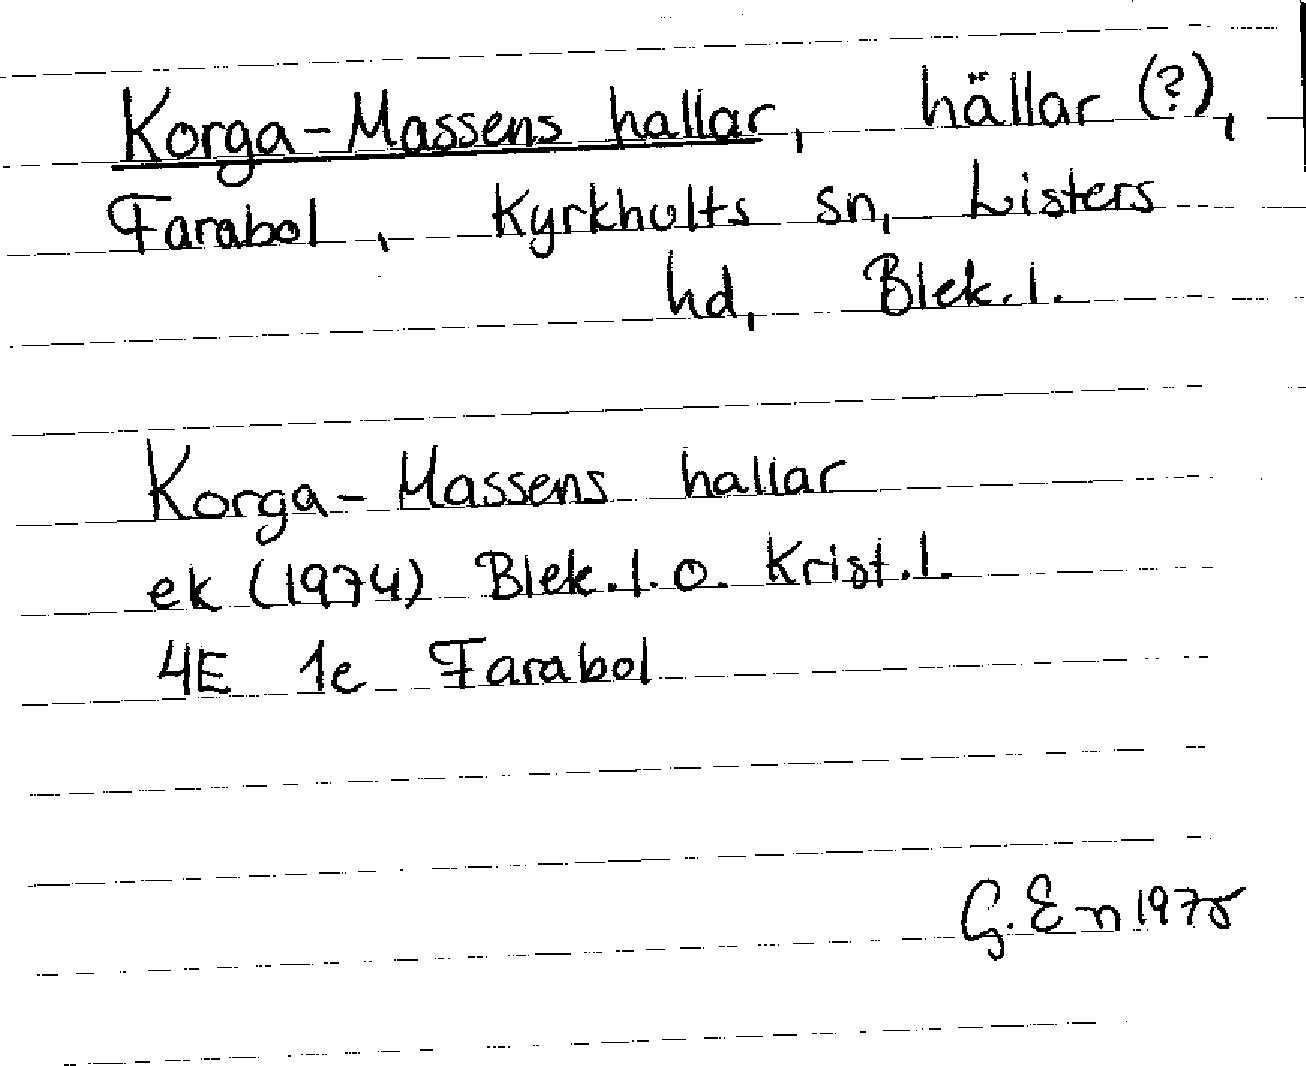 Korga-Massens hallar, hällar (?),
Farabol, Kyrkhults sn, Listers
hd, Blek.l.
Korga-Massens hallar
ek (1974) Blek.l.o. Krist.l.
4E 1e Farabol
G. En 1975